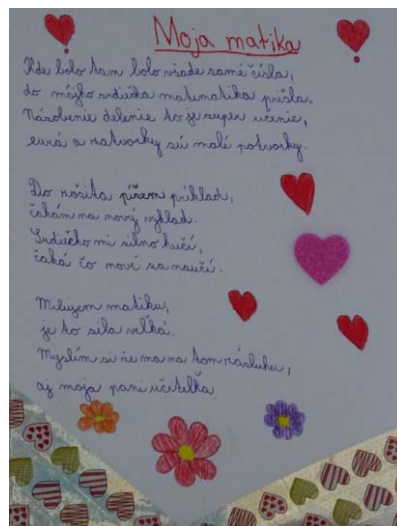 Moja matika
Kde bolo tam bolo všade samé čísla,
do môjho srdiečka matematika prišla.
Násobenie delenie to je super učenie,
eurá a zátvorky sú malé potvorky.
Do zošita píšem príklad,
čakám na nový výklad.
Srdiečko mi silno hučí,
čaká čo nové sa naučí.
Milujem matiku,
je to sila veľká.
Myslím si že ma na tom zásluhu,
aj moja pani učiteľka.